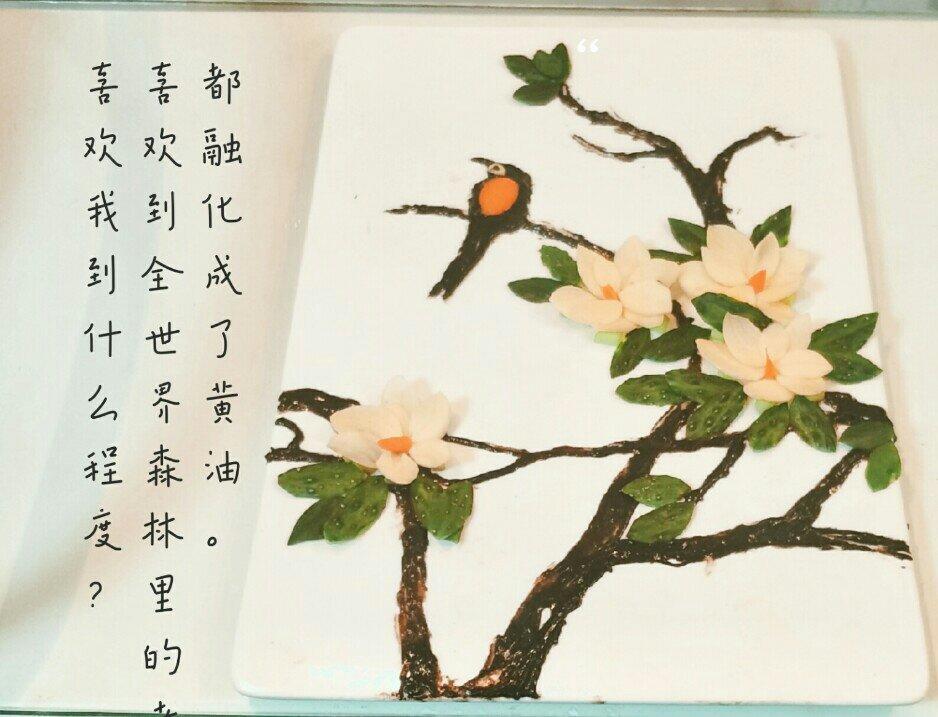 喜欢我到什么程度?
喜欢到全世界森林里的
都融化成了黄油。